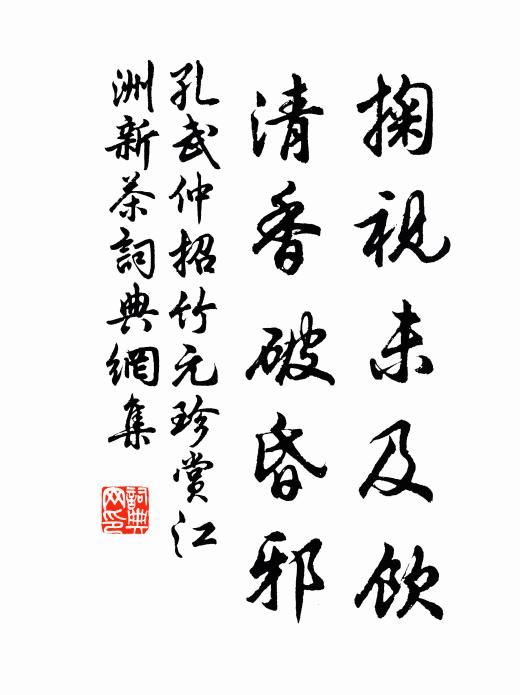 掬視未及飲
清香破昏邪
孔武仲招竹元珍賞江
洲新茶詞典網集
詞典网印